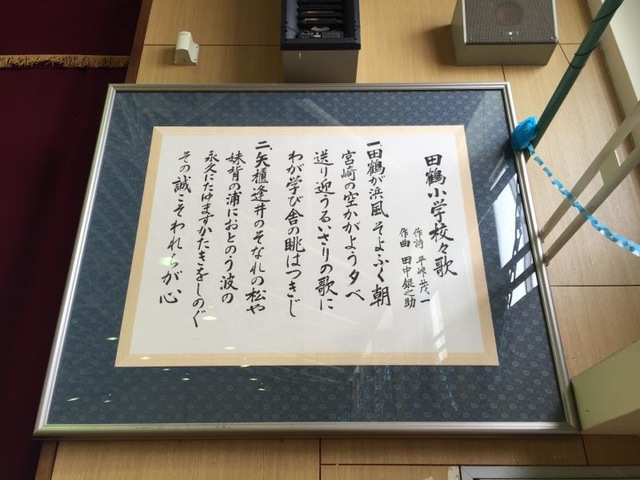 田鶴小学校々歌
作詩 平峠茂一
作曲 田中銀之助
一、田鶴が浜風そよふく朝
宮崎の空かがよう夕べ
送り迎うるいさりの歌に
わが学び舎の眺はつきじ
二、矢櫃逢井のそなれの松や
妹背の浦におとのう波の
永久にたゆまずかたきをしのぐ
その誠こそわれらが心